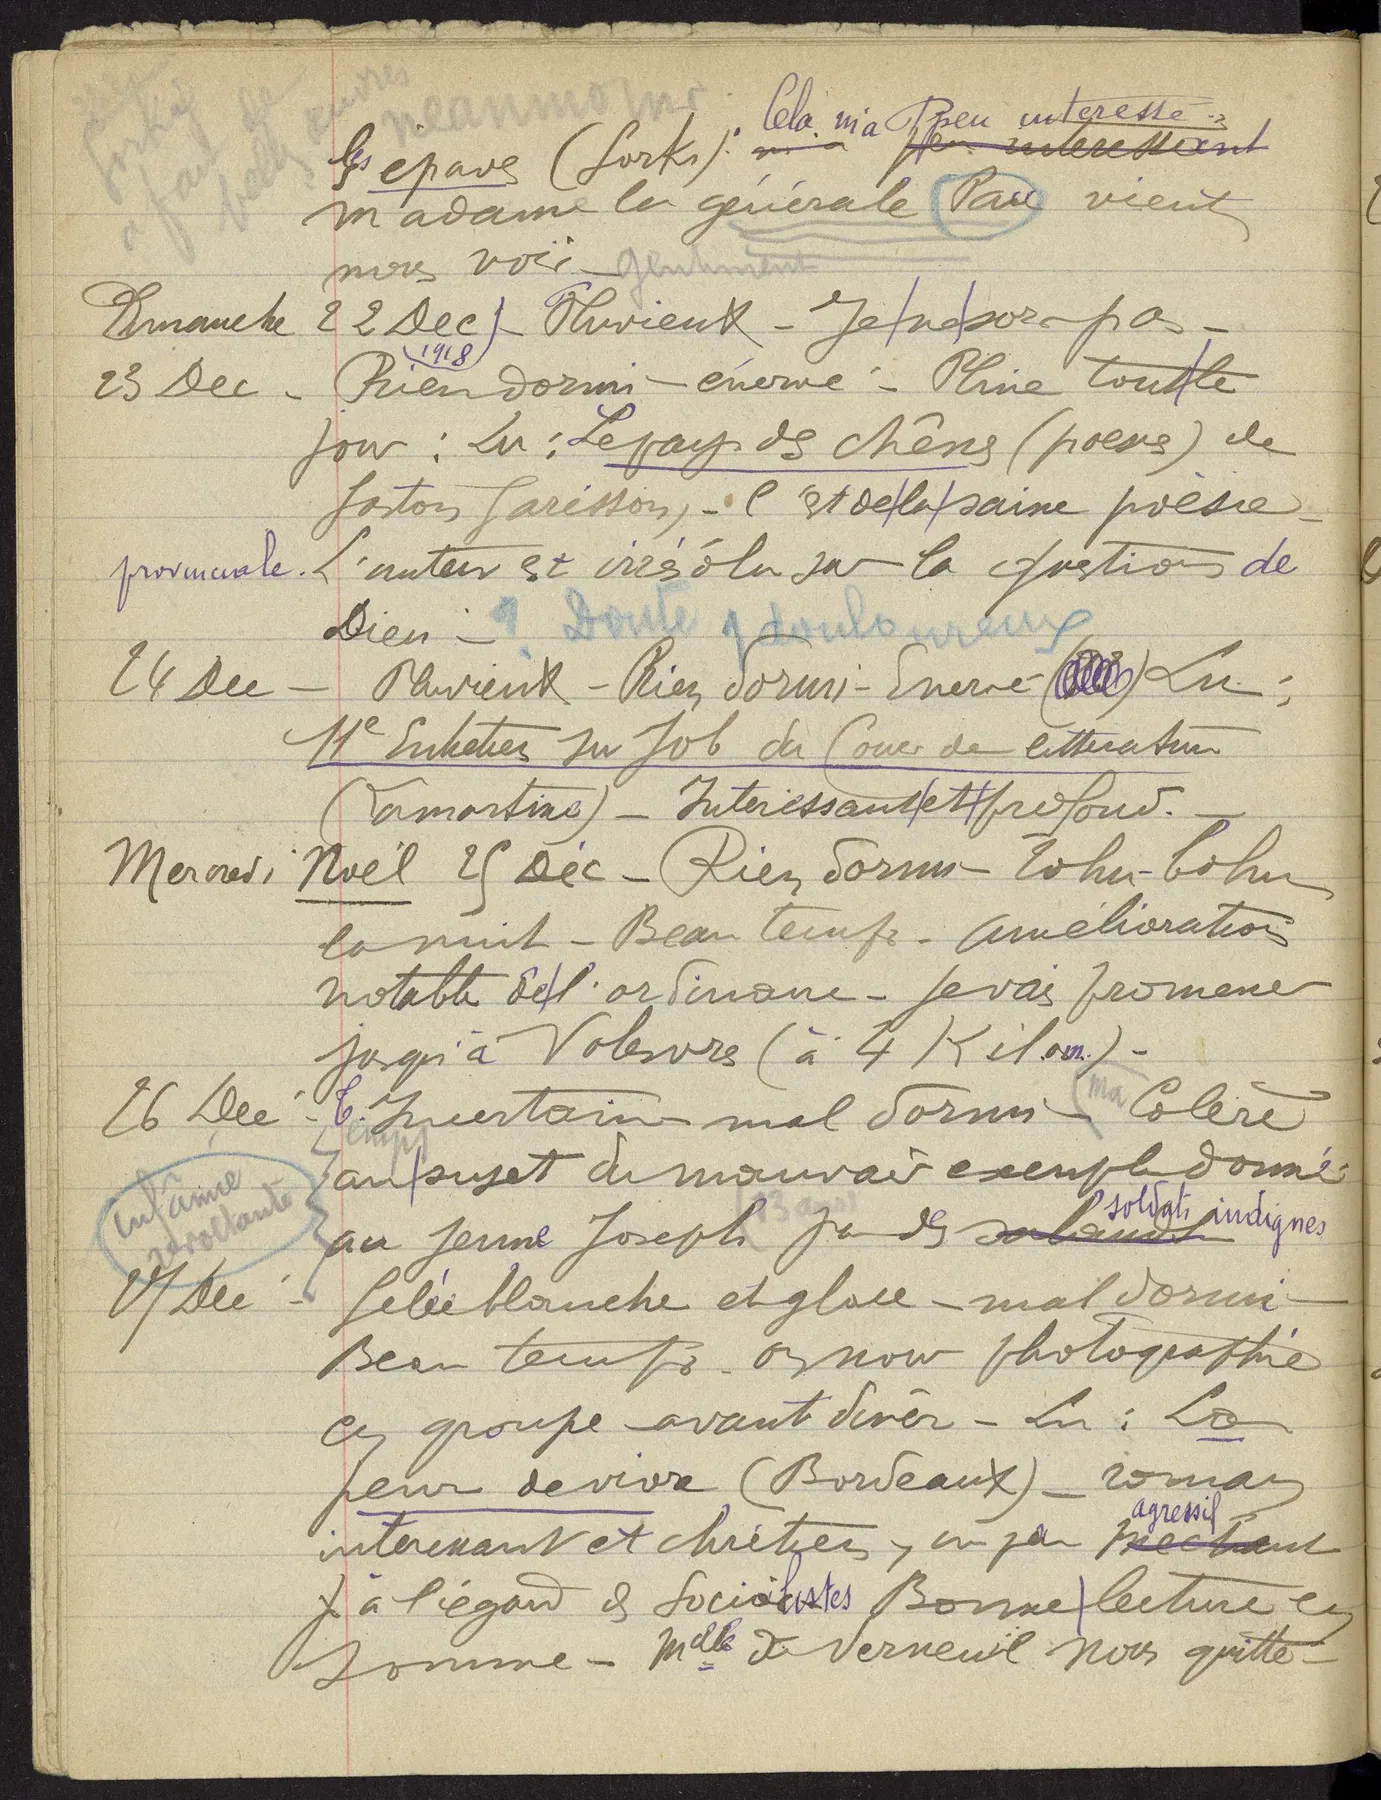 néanmoins
Gorki a fait de belles œuvres
Cela m'a peu intéressé
Les épaves (Gorki): peu intéressant
Madame la générale Pau vient
nous voir - gentiment
Dimanche 22 Dec - Pluvieux - Je ne sors pas -
1918
23 Dec - Rien dormi - énervé - Pluie tout le
jour : Lu : Le pays des chênes (poesies) de
Gaston Garisson, - C'est de la saine poèsie -
provinciale. L'auteur est irrésolu sur la question de
Dieu - ? Doute douloureux
24 Dec - Pluvieux - Rien dormi - Enervé Lu :
11e Entretien sur Job du Cours de litterature
(Lamartine) - Interessant et profond. -
Mercredi Noël 25 Déc - Rien dormi - Tohu-bohu
la nuit - Beau temps - amélioration
notable de l'ordinaire - Je vais promener
jusqu'à Valesvres (à 4 Kilom.) -
26 Dec - T. Incertain - mal dormi - (ma Colère
emps
au sujet du mauvais exemple donné
13 ans
soldats indignes
au jeune Joseph par des salauds
infamie révoltante
27 Dec - Gelée blanche et glace - mal dormi -
Beau temps - on nous photographie
en groupe avant diner - Lu : La
peur de vivre (Bordeaux) - roman
agressif
interessant et chretien, un peu mechant
à l'égard des Socialistes Bonne lecture en
somme - Melle de Verneuil nous quitte -